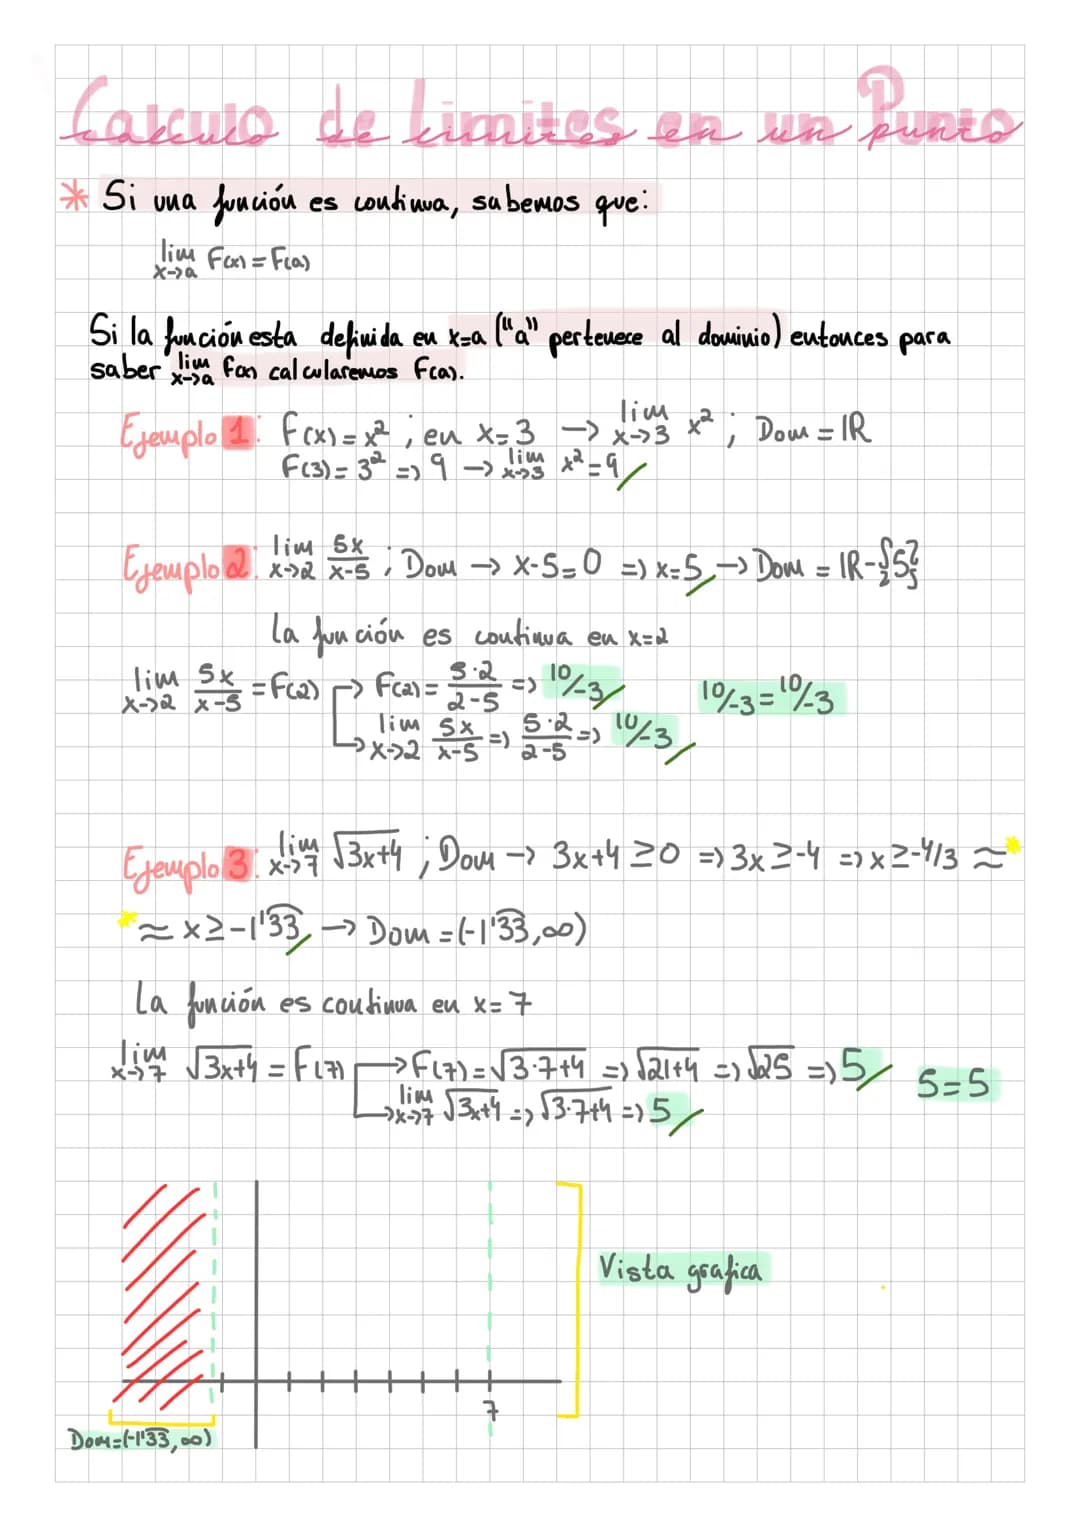 Calculo de Limites en un Punto
* Si una función es continua, sabemos que:
lim x->a F(x) = F(a)
Si la función esta definida en x=a ("a" pertenece al dominio) entonces para
saber lim x->a F(x) calcularemos F(a).
Ejemplo 1: F(x) = x² ; en x=3 -> lim x->3 x² ; Dom = IR
F(3) = 3² => 9 -> lim x->3 x² = 9
Ejemplo 2: lim x->2 5x/x-5 ; Dom -> x-5=0 => x=5 -> Dom = IR-{5}
La función es continua en x=2
lim x->2 5x/x-5 = F(2) -> F(2) = 5·2/2-5 => 10/-3 10/-3 = 10/-3
-> lim x->2 5x/x-5 => 5·2/2-5 => 10/-3
Ejemplo 3: lim x->7 √3x+4 ; Dom -> 3x+4 ≥ 0 => 3x ≥ -4 => x ≥ -4/3 ≈ *
* ≈ x ≥ -1'33 -> Dom = (-1'33, ∞)
La función es continua en x=7
lim x->7 √3x+4 = F(7) -> F(7) = √3·7+4 => √21+4 => √25 => 5 5=5
-> lim x->7 √3x+4 => √3·7+4 => 5
Vista grafica
7
Dom=(-1'33, ∞)